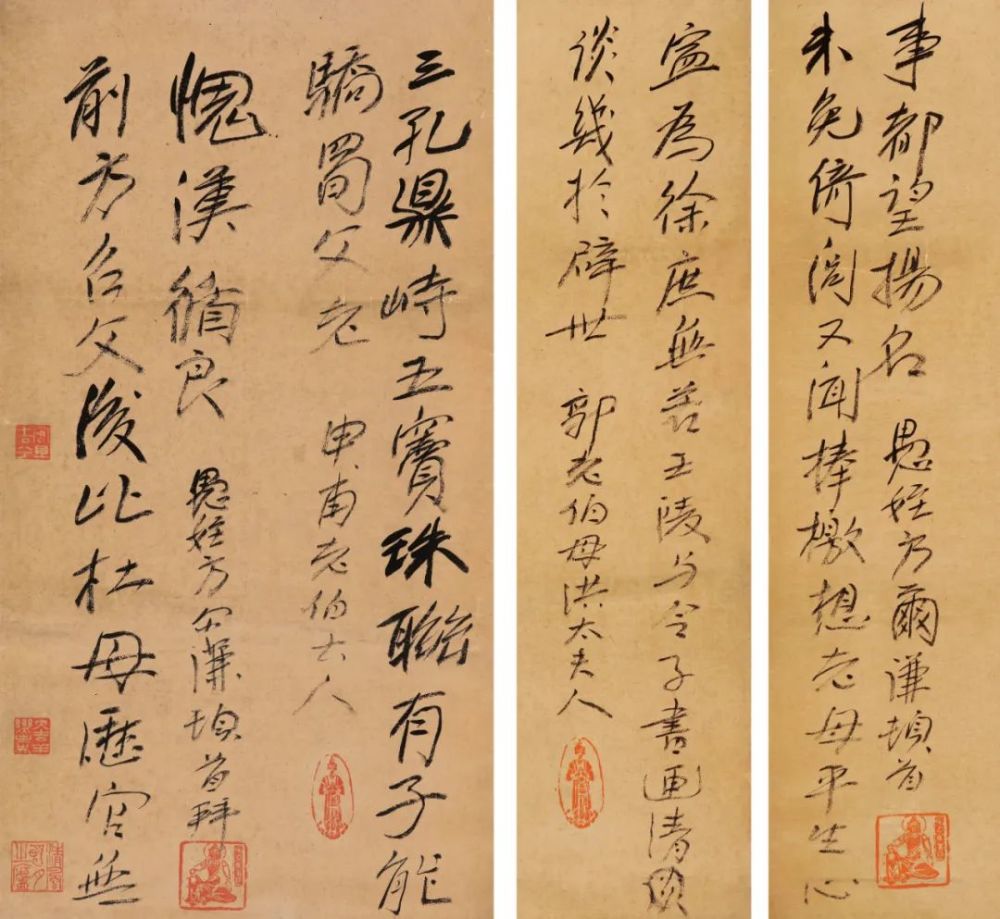 三孔鼎峙五竇珠聯有子能
驕蜀父老
申甫老伯大人
前為召父後比杜母歷官無
愧漢循良
愚姪方尔謙頓首拜
寧為徐庶無若王陵与令子書画清
談幾於辟世
郭老伯母洪太夫人
未免倚閭又聞捧檄想老母平生心
事都望揚名
愚姪方爾謙頓首